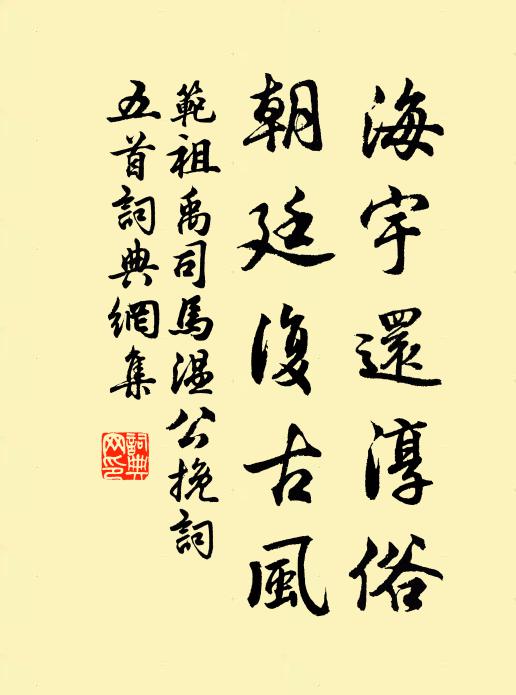 海宇還淳俗
朝廷復古風
範祖禹司馬溫公挽詞
五首詞典網集
詞典網印